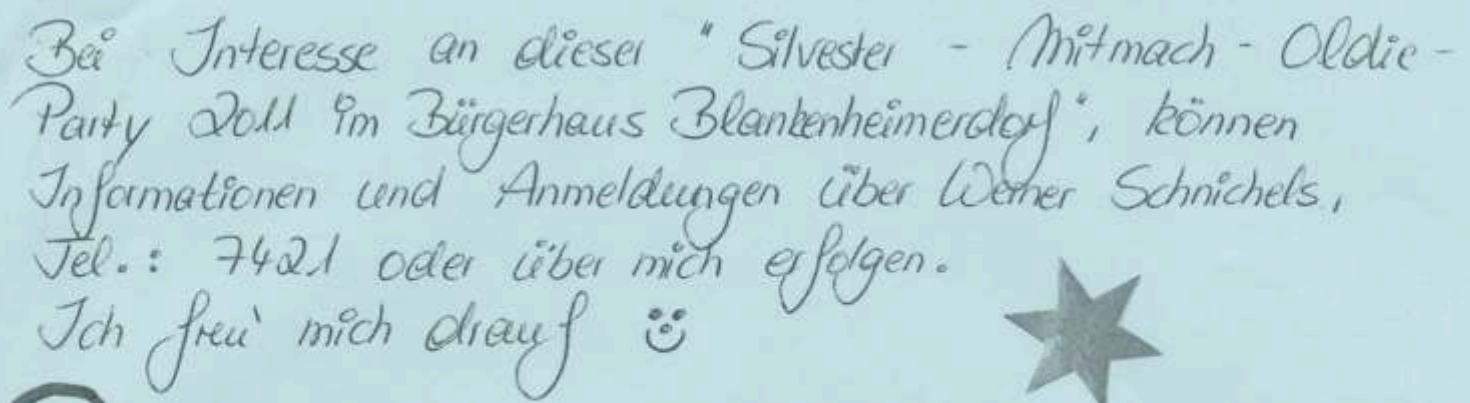 Bei Interesse an dieser "Silvester - Mitmach - Oldie -
Party 2011 im Bürgerhaus Blankenheimerdorf", können
Informationen und Anmeldungen über Werner Schnichels,
Tel.: 7421 oder über mich erfolgen.
Ich freu' mich drauf